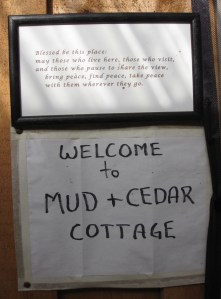 Blessed be this place:
may those who live here, those who visit,
and those who pause to share the view,
bring peace, find peace, take peace
with them wherever they go.
WELCOME
to
MUD + CEDAR
COTTAGE